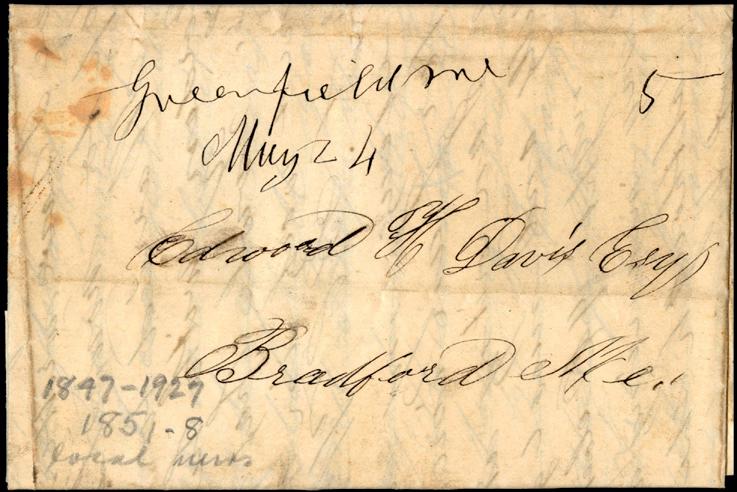 Greenfield me
5
May 24
Edward H Davis Esq
Bradford Me.
1847-1927
1851-8
local